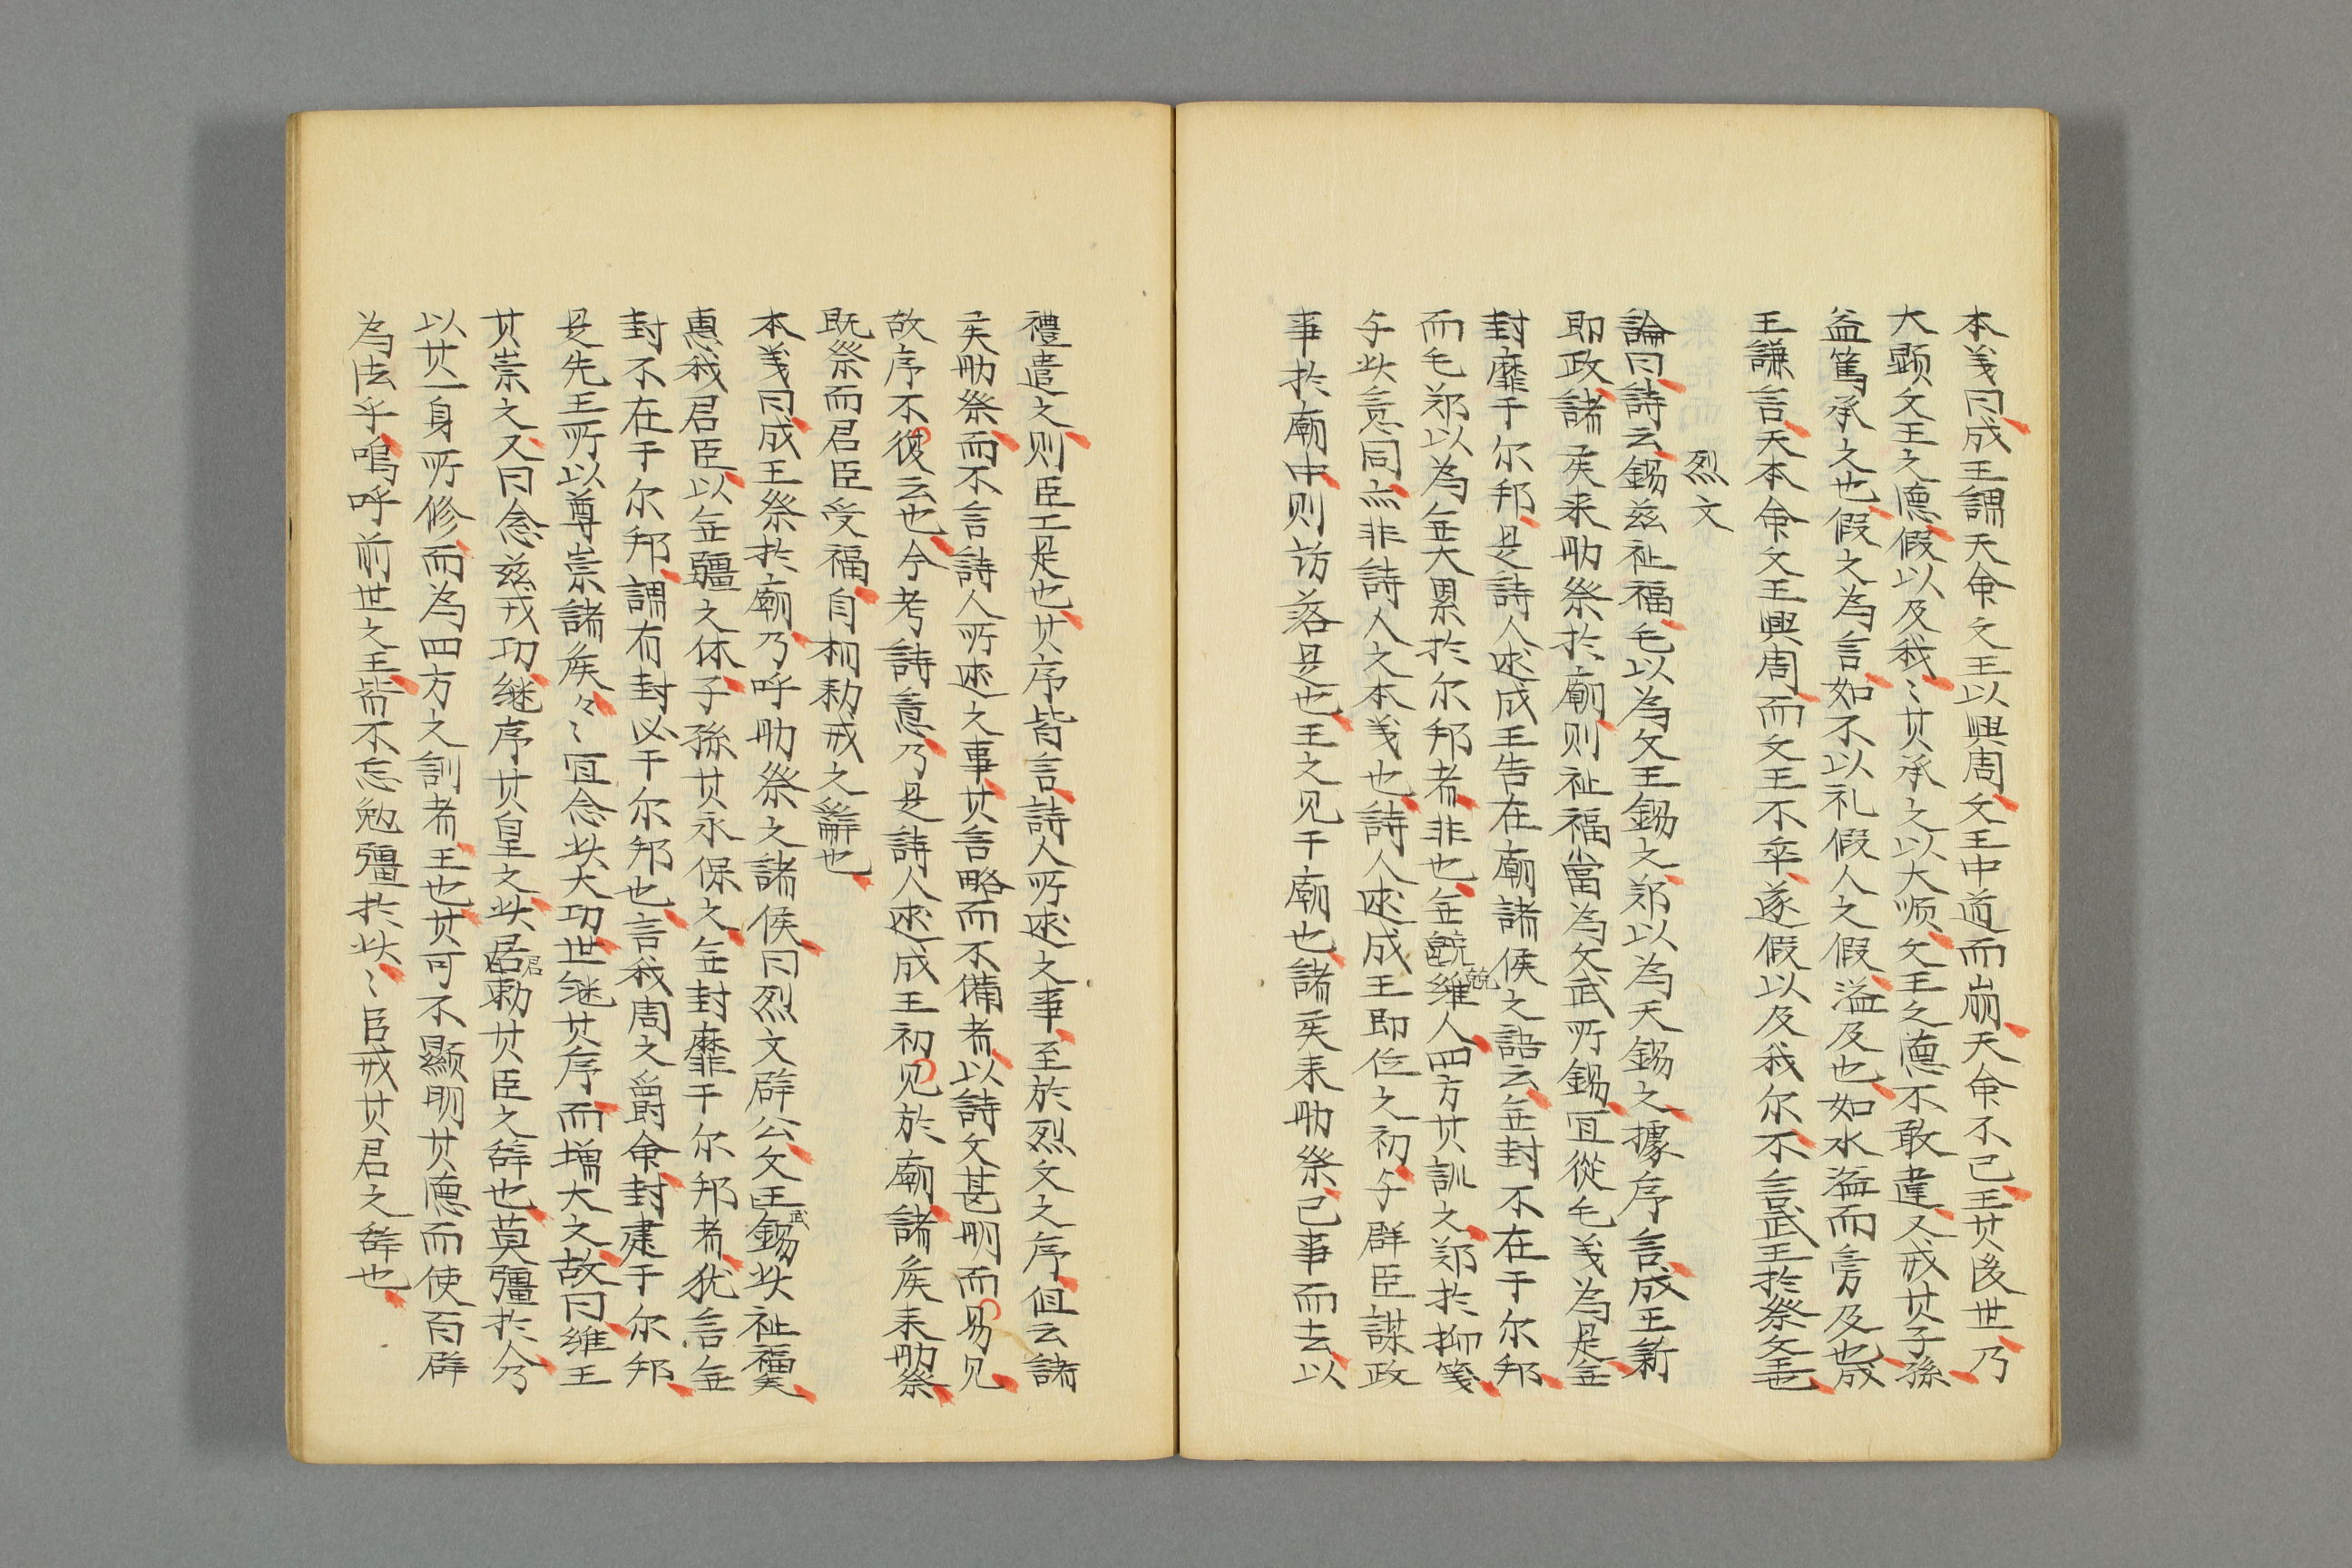 本義曰成王謂天命文王以興周文王中道而崩天命不已王其後世乃
大顕文王之德假以及我〻其承之以大順文王之德不敢違又戒其子孫
益篤承之也假之為言如不以礼假人之假溢及也如水溢而旁及也成
王謙言天本命文王興周而文王不卒遂假以及我尔不言武王於祭文王也
烈文
論曰詩云錫茲祉福毛以為文王錫之鄭以為天錫之據序言成王新
即政諸侯来助祭於廟則祉福當為文武所錫宜從毛義為是無
封靡于尔邦是詩人述成王告在廟諸侯之語云無封不在于尔邦
而毛鄭以為無大累於尔邦者非也無競維人四方其訓之鄭於抑箋
与此意同亦非詩人之本義也詩人述成王即位之初与群臣謀政
事於廟中則訪落是也王之见于廟也諸侯来助祭已事而去以
禮遣之則臣工是也其序皆言詩人所述之事至於烈文之序但云諸
侯助祭而不言詩人所述之事其言略而不備者以詩文甚明而易见
故序不復云也今考詩意乃是詩人述成王初见於廟諸侯来助祭
既祭而君臣受福自相勑戒之辭也
本義曰成王祭於廟乃呼助祭之諸侯曰烈文辟公文王武錫此祉福矣
惠我君臣以無疆之休子孫其永保之無封靡于尔邦者犹言無
封不在于尔邦謂有封必于尔邦也言我周之爵命封建于尔邦
是先王所以尊崇諸侯々〻宜念此大功世继其序而增大之故曰維王
其崇之又曰念茲戎功継序其皇之此君勅其臣之辞也莫彊於人兮
以其一身所修而為四方之訓者王也其可不顯明其德而使百辟
為法乎嗚呼前世之王皆不忘勉彊於此〻臣戒其君之辞也